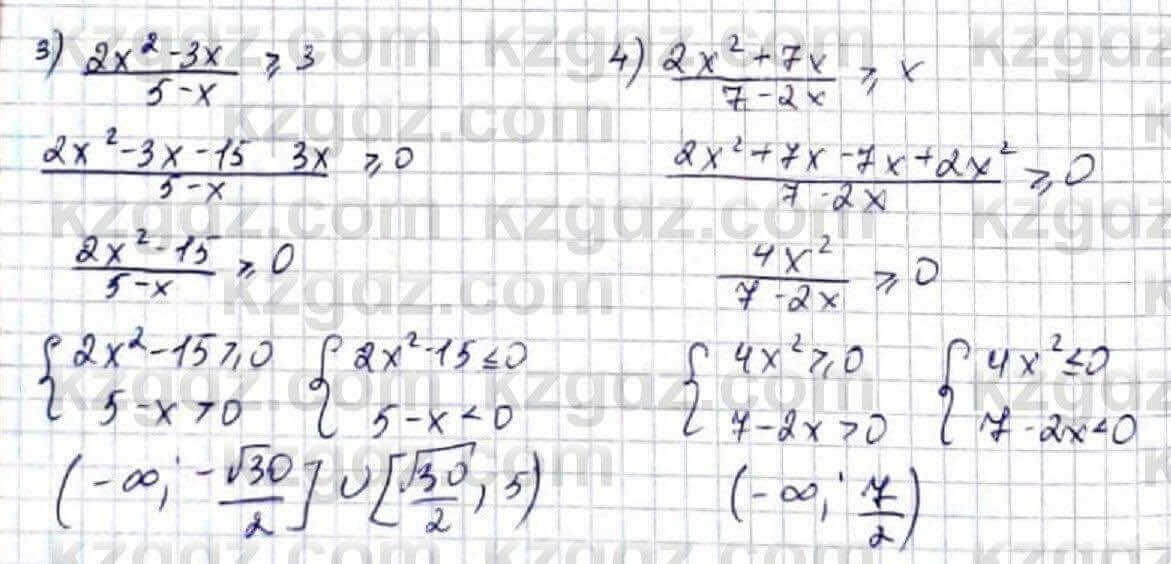 3) (2x² - 3x)/(5 - x) ⩾ 3
(2x² - 3x - 15 3x)/(5 - x) ⩾ 0
(2x² - 15)/(5 - x) ⩾ 0
{ 2x² - 15 ⩾ 0 { 2x² - 15 ≤ 0
5 - x > 0 5 - x < 0
(-∞; -√30/2] ∪ [√30/2; 5)
4) (2x² + 7x)/(7 - 2x) ⩾ x
(2x² + 7x - 7x + 2x²)/(7 - 2x) ⩾ 0
4x²/(7 - 2x) ⩾ 0
{ 4x² ⩾ 0 { 4x² ≤ 0
7 - 2x > 0 7 - 2x < 0
(-∞; 7/2)
kzgdz.com